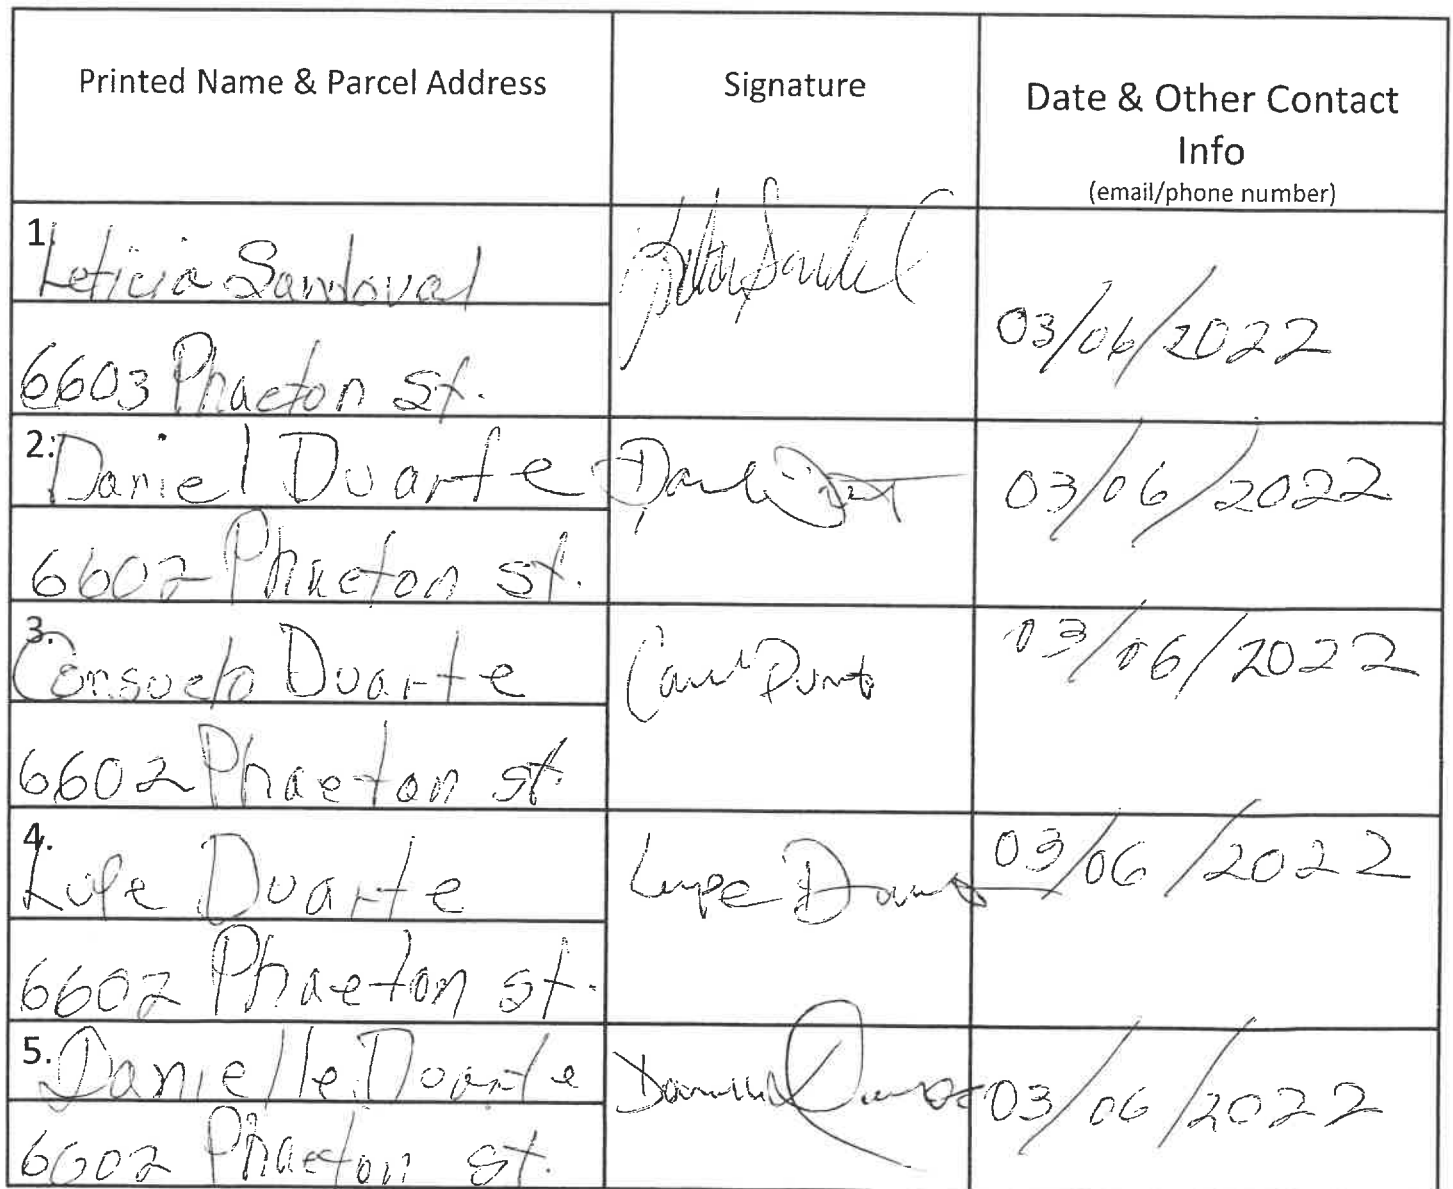 Printed Name & Parcel Address
Signature
Date & Other Contact
Info
(email/phone number)
1.
Leticia Sandoval
6603 Phaeton st.
03/06/2022
2:
Daniel Duarte
6602 Phaeton st.
03/06/2022
3.
Consuelo Duarte
6602 Phaeton st.
03/06/2022
4.
Lupe Duarte
6602 Phaeton st.
Lupe
03/06/2022
5.
Danielle Duarte
6602 Phaeton st.
03/06/2022